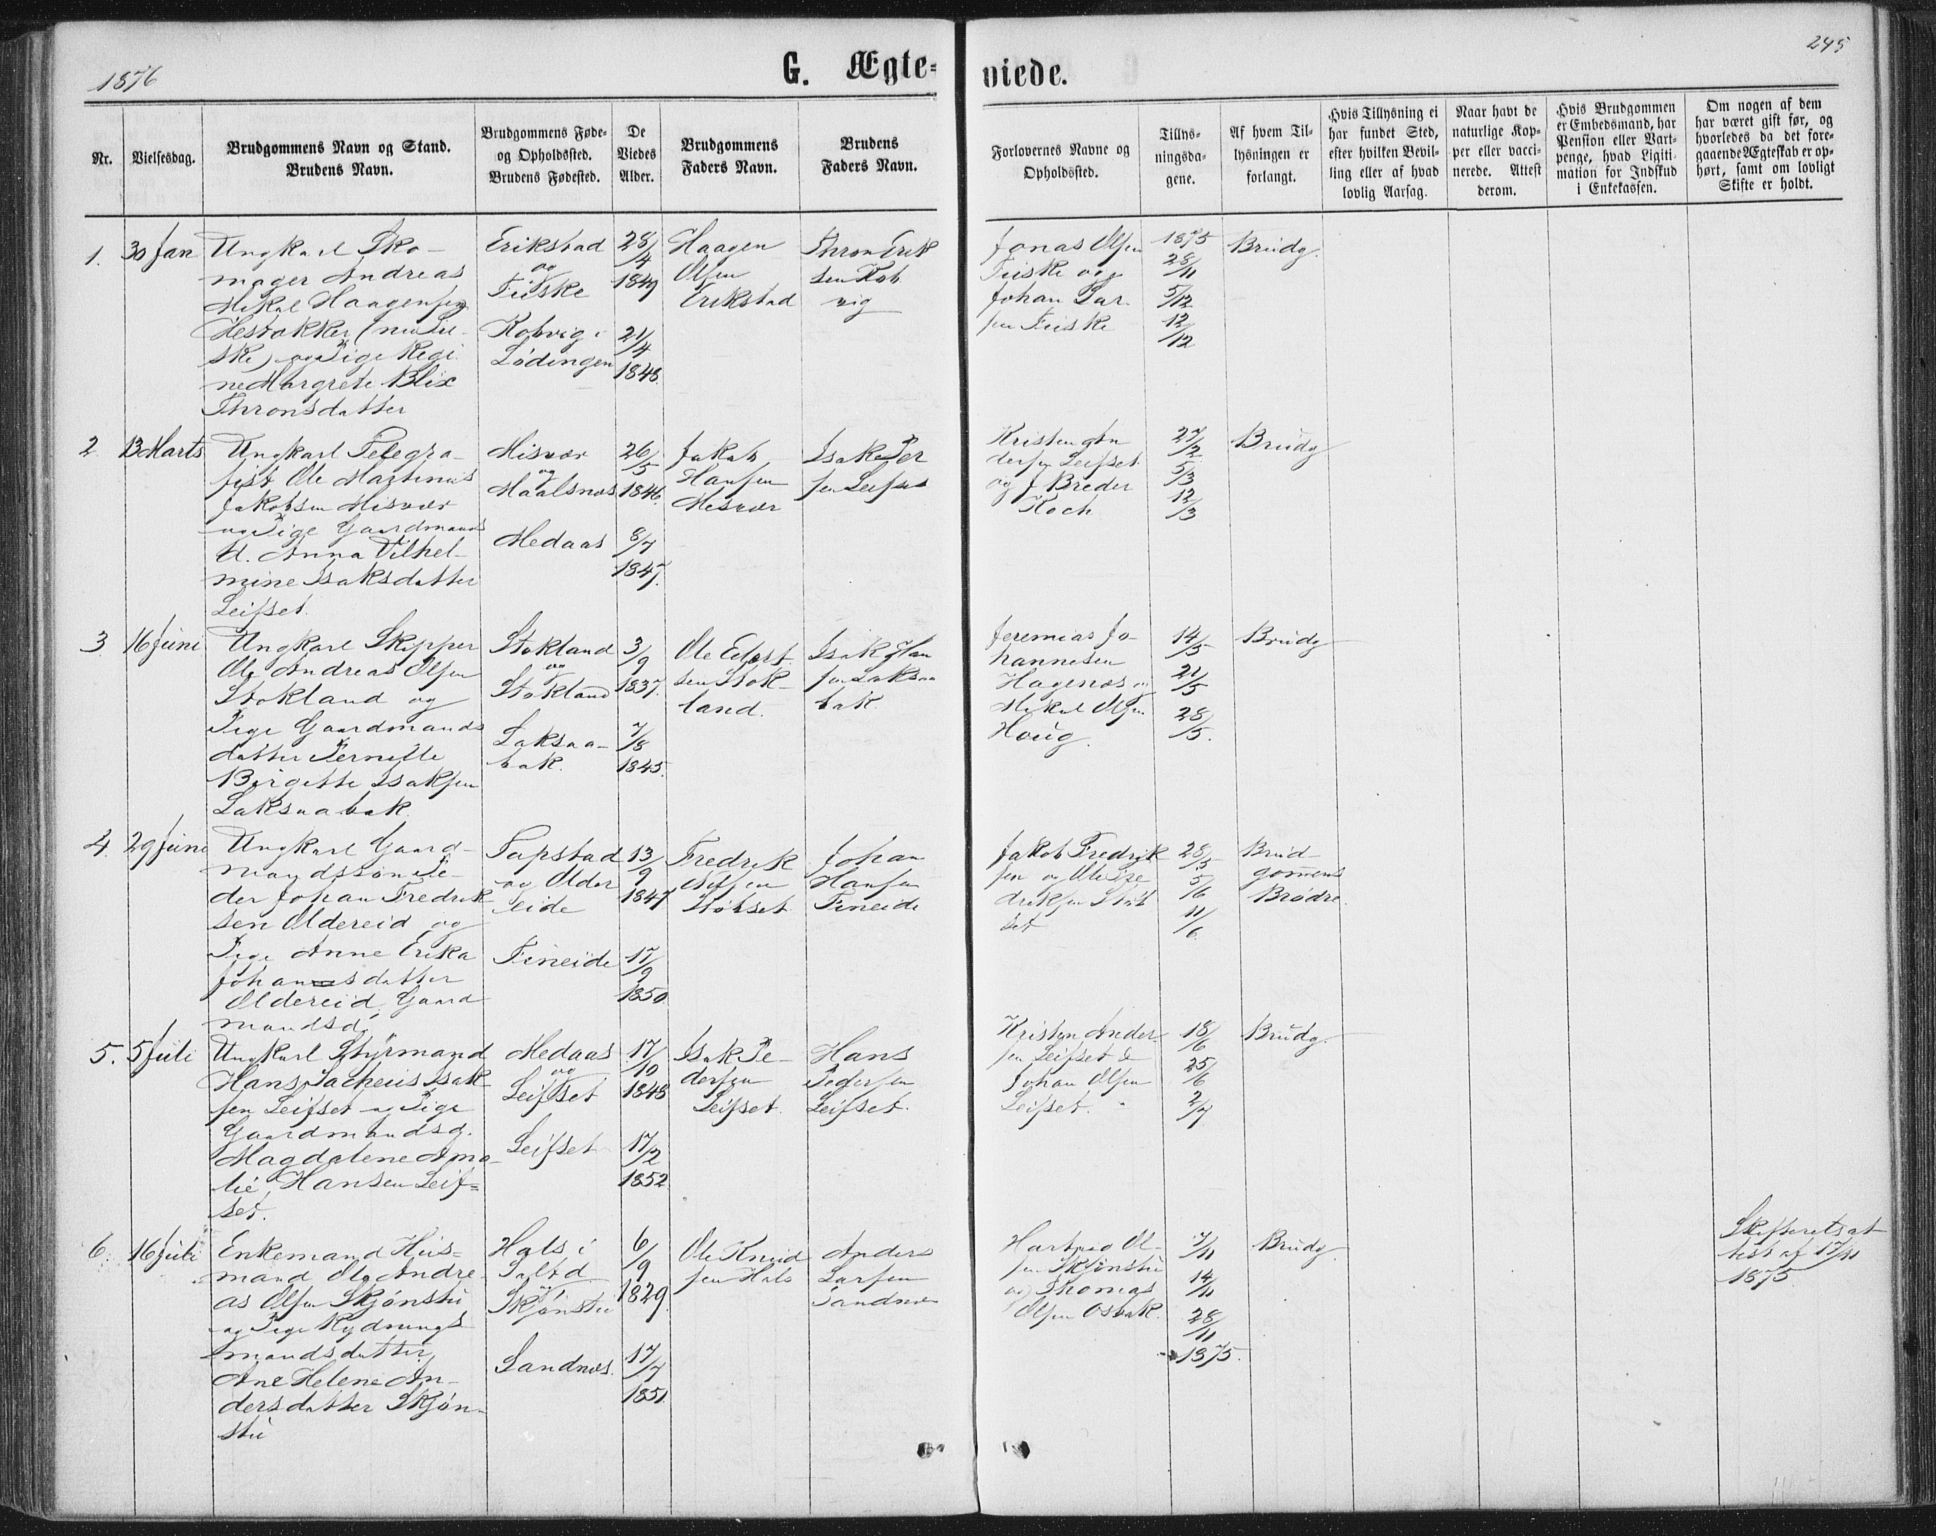 1876
G. Ægte-
viede.
245
Nr.
Vielsesdag.
Brudgommens Navn og Stand.
Brudens Navn.
Brudgommens Føde-
og Opholdssted.
Brudens Fødested.
De
Viedes
Alder.
Brudgommens
Faders Navn.
Brudens
Faders Navn.
Forlovernes Navne og
Opholdssted.
Tillys-
ningsda-
gene.
Af hvem Til-
lysningen er
forlangt.
Hvis Tillysning ei
har fundet Sted,
efter hvilken Bevil-
ling eller af hvad
lovlig Aarsag.
Naar havt de
naturlige Kop-
per eller vacci-
nerede. Attest
derom.
Hvis Brudgommen
er Embedsmand, har
Pension eller Vart-
penge, hvad Ligiti-
mation for Indskud
i Enkekassen.
Om nogen af dem
har været gift før, og
hvorledes da det fore-
gaaende Ægteskab er op-
hørt, samt om lovligt
Skifte er holdt.
1.
30 Jan
Ungkarl Sko-
mager Andreas
Mikal Haagensen
og Pige Regi
ne Margrete Blix
Thronsdatter
Erikstad
og
Fuske
Kobvig i
Lødingen
28/4
1849
21/4
1848.
Haagen
Olsen
Erikstad
Thron Erik
sen Kob
vig
Jonas Olsen
Fuske og
Johan Lar-
sen Fuske
1875
28/11
5/12
12/12
Brudg.
2
13 Marts
Ungkarl Telegra-
fist Ole Martinus
Jakobsen Misvær
og Pige Gaardmands
d. Anna Vilhel-
mine Isaksdatter
Leifset.
Misvær
og
Maalsnes
Medaas
26/5
1846.
8/7
1847.
Jakob
Hansen
Misvær
Isak Peder
sen Leifset
Kristen An
dersen Leifset
og J Breder
Koch
27/2
5/3
12/3
Brudg
3
16 Juni
Ungkarl Skipper
Ole Andreas Olsen
Stokland og
Pige Gaardmands
datter Pernille
Birgitte Isaksen
Laksaabak.
Stokland
og
Stokland
Laksaa-
bak.
3/9
1837.
7/8
1845.
Ole Edvart
sen Stok-
land.
Isak Han
sen Laksaa
bak
Jeremias Jo-
hannesen
Hagenæs og
Mikal Olsen
Houg.
14/5
21/5
28/5.
Brudg
4.
29 Juni
Ungkarl Gaard-
mandssøn Pe-
der Johan Fredrik
sen Oldereid og
Pige Anne Erika
Johansdatter
Oldereid, Gaard
mandsd.
Topstad
og Older
eide
Fineide
13/9
1847
17/9
1850
Fredrik
Støvset
Johan
Hansen
Fineide
Jakob Fredrik
sen og Ole Fre
driksen Støv
set
28/5
5/6
11/6
Brud
gommens
Brødre.
5.
5 Juli
Ungkarl Styrmand
Hans Sacheus Isak
sen Leifset og Pige
Gaardmandsd.
Magdalene Ama-
lie, Hansen Leif-
set.
Medaas
og
Leifset
Leifset
17/10
1848
17/2
1852
Isak Pe-
dersen
Leifset.
Hans
Pedersen
Leifset.
Kristen Ander
sen Leifset &
Johan Olsen
Leifset.
18/6
25/6
2/7
Brudg.
6.
16 Juli
Enkemand Hus-
mand Ole Andre
as Olsen Skjønstu
og Pige Rydnings
mandsdatter
Ane Helene An-
dersdatter Skjøn-
stu
Hals i
Saltd.
og
Skjønstu
Sandnes.
6/9
1829.
17/7
1851
Ole Knud
sen Hals
Anders
Larsen
Sandnes
Hartvig Ol-
sen Skjønstu
og Thomas
Olsen Osbak.
7/11
14/11
28/11
1875.
Brudg.
Skifteretsat
test af 17/11
1875.